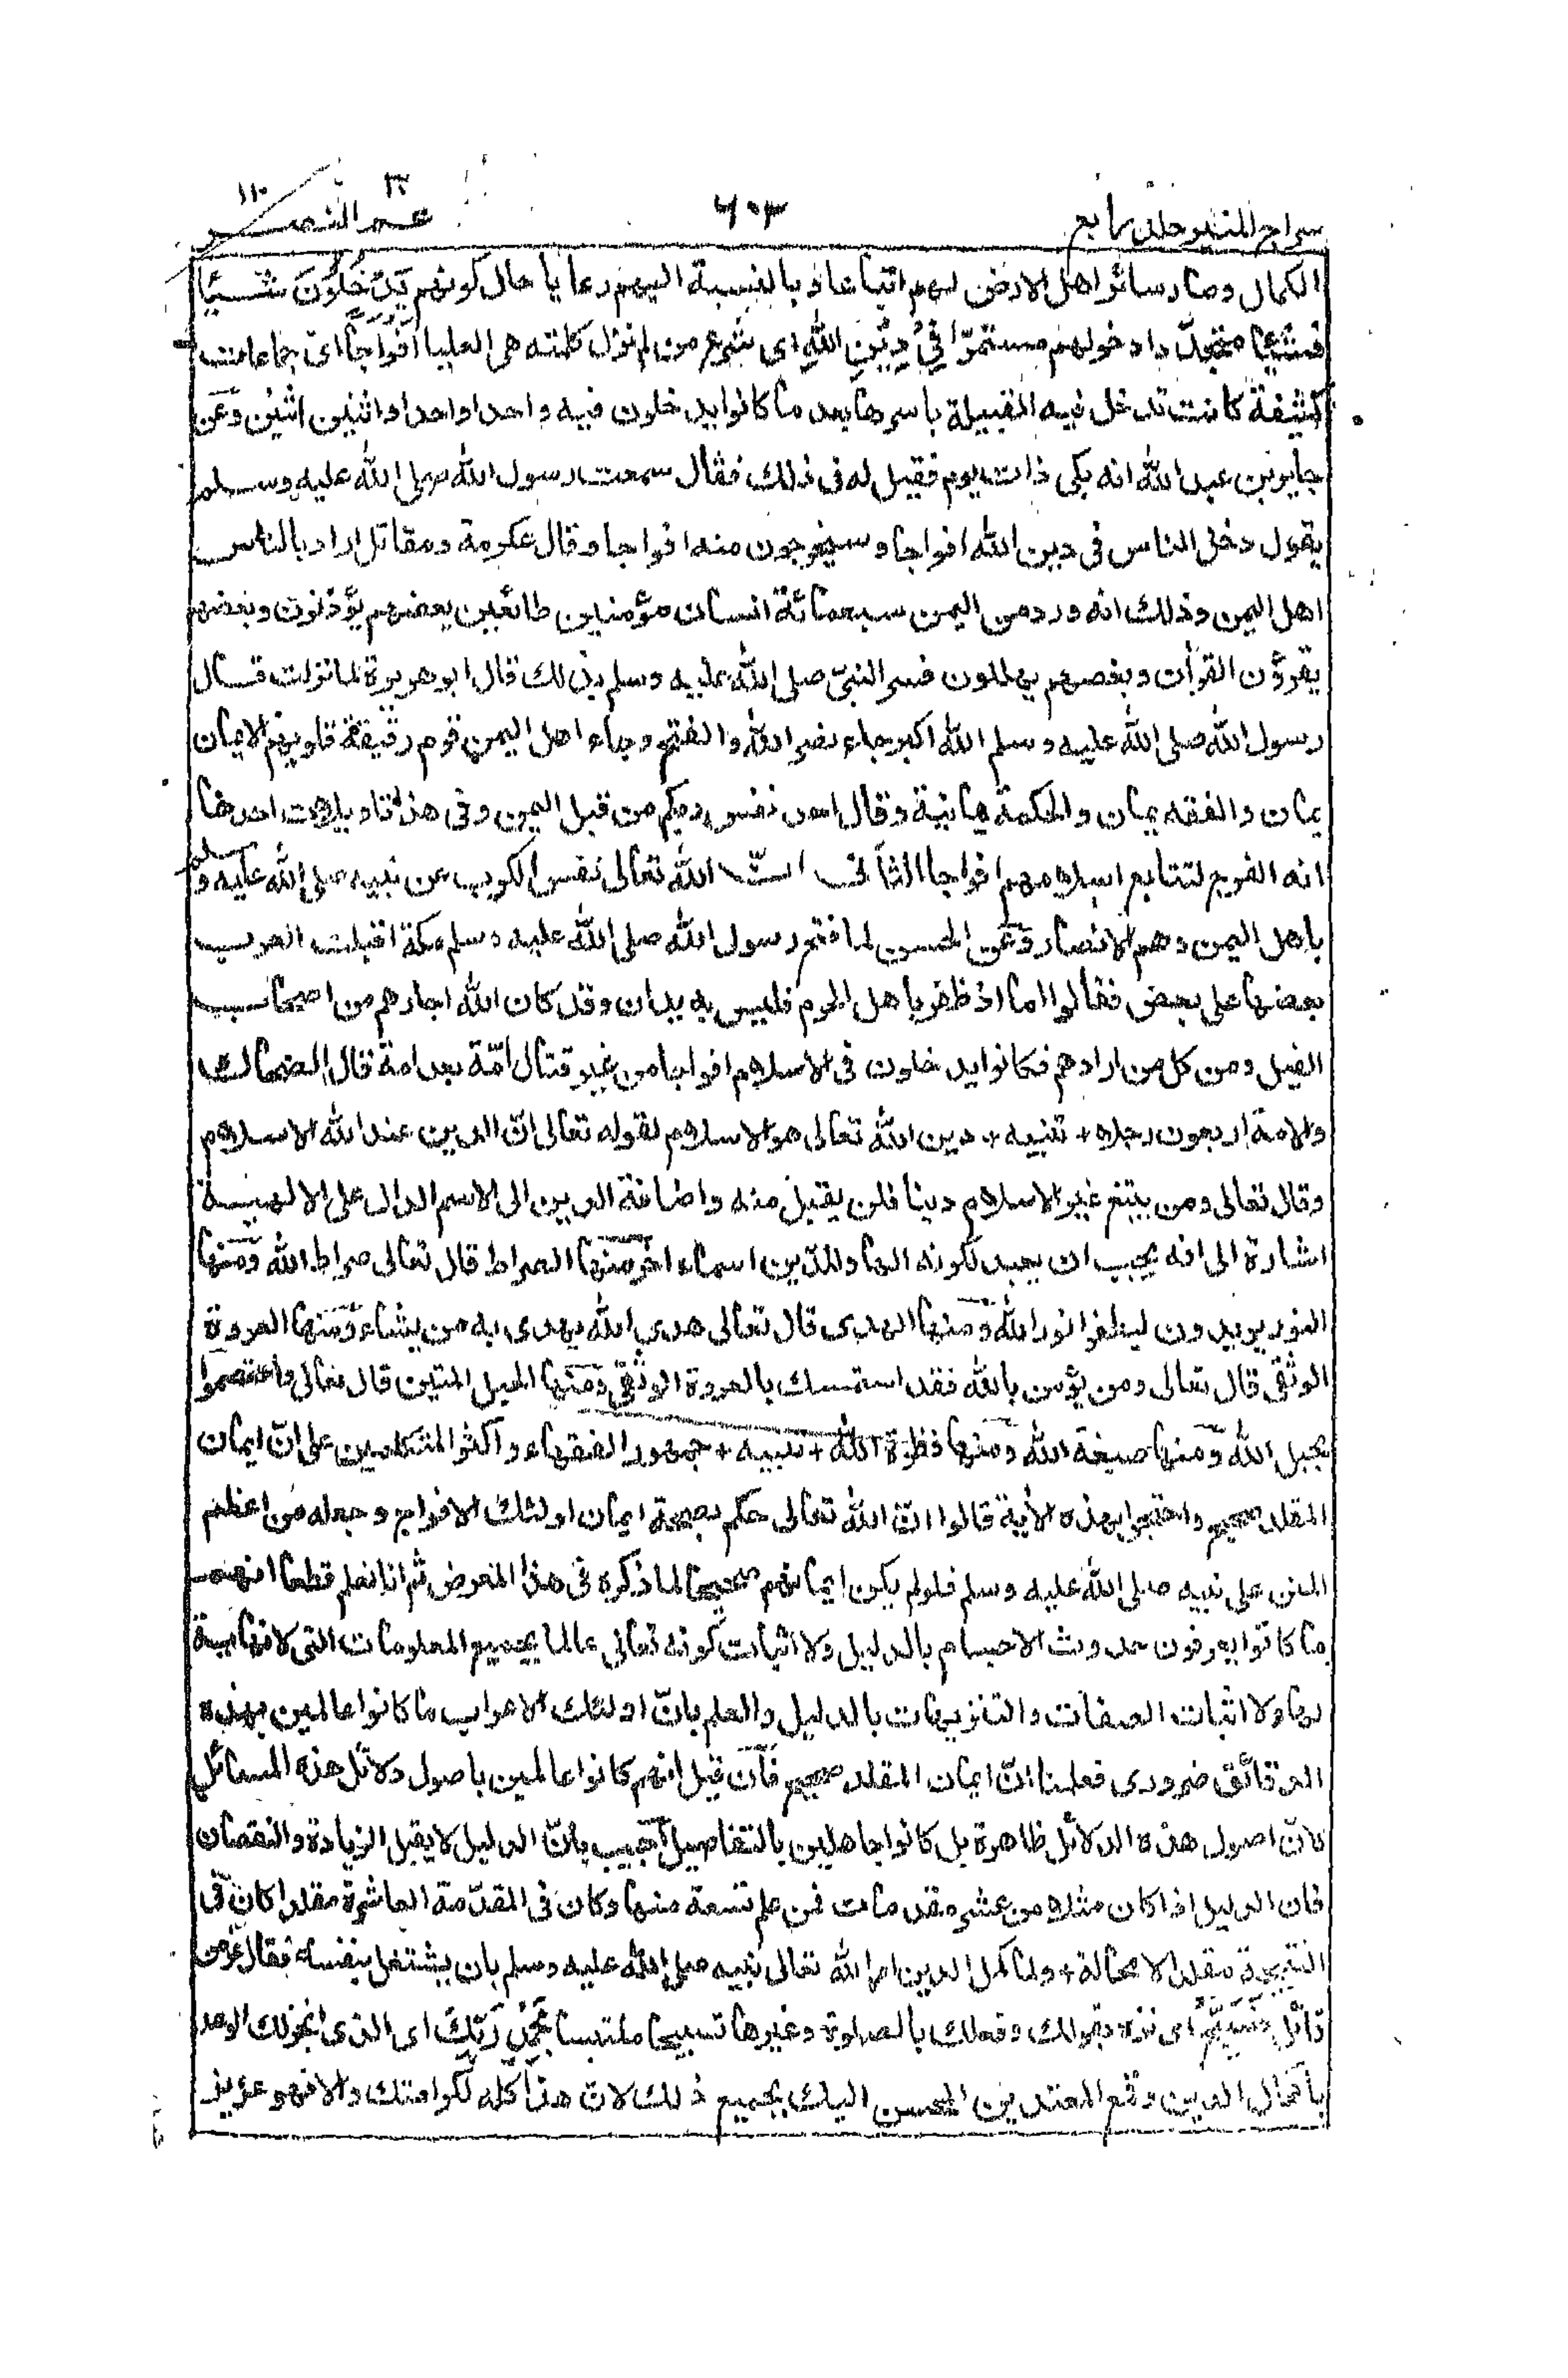 سراج المنير جلد رابع ٦٠٣ عم النصر ٣٠ ١١٠
الكمال وصار سائر اهل الارض لهم اتباعا و بالنسبة اليهم رعايا حال كونهم يَدْخُلُوْنَ شيئا
فشيئا متجددا دخولهم مستمرّا فِيْ دِيْنِ اللّٰهِ اى شرع من لم تزل كلمته هى العليا اَفْوَاجًا اى جماعات
كثيفة كانت تدخل فيه القبيلة باسرها بعد ما كانوا يدخلون فيه واحدا واحدا واثنين اثنين وعن
جابر بن عبد اللّٰه انه بكى ذات يوم فقيل له فى ذلك فقال سمعت رسول اللّٰه صلى اللّٰه عليه وسلم
يقول دخل الناس فى دين اللّٰه افواجا وسيخرجون منه افواجا وقال عكرمة ومقاتل اراد بالناس
اهل اليمن وذلك انه ورد من اليمن سبعمائة انسان مؤمنين طائعين بعضهم يؤذنون وبعضهم
يقرؤن القراٰن وبعضهم يهللون فسر النبىّ صلى اللّٰه عليه وسلم بذلك قال ابو هريرة لما نزلت قال
رسول اللّٰه صلى اللّٰه عليه وسلم اللّٰه اكبر جاء نصر اللّٰه والفتح وجاء اهل اليمن قوم رقيقة قلوبهم الايمان
يمان والفقه يمان والحكمة يمانية وقال اجد نفس ربكم من قبل اليمن وفى هذا تاويلات احدهما
انه الفرج لتتابع اسلامهم افواجا الثانى انّ اللّٰه تعالى نفس الكرب عن نبيه صلى اللّٰه عليه وسلم
باهل اليمن وهم الانصار وعن الحسن لما فتح رسول اللّٰه صلى اللّٰه عليه وسلم مكة اقبلت العرب
بعضها على بعض فقالوا اما اذ ظفر باهل الحرم فليس به يدان وقد كان اللّٰه اجارهم من اصحاب
الفيل ومن كل من ارادهم فكانوا يدخلون فى الاسلام افواجا من غير قتال امّة بعد امة قال الضحاك
والامة اربعون رجلا + تنبيه + دين اللّٰه تعالى هو الاسلام لقوله تعالى انّ الدين عند اللّٰه الاسلام
وقال تعالى ومن يبتغ غير الاسلام دينا فلن يقبل منه واضافة الدين الى الاسم الدال على الالهية
اشارة الى انه يجب ان يعبد لكونه الها وللدّين اسماء اخر منها الصراط قال تعالى صراط اللّٰه ومنها
النور يريدون ليطفؤا نور اللّٰه ومنها الهدى قال تعالى هدى اللّٰه يهدى به من يشاء ومنها العروة
الوثقى قال تعالى ومن يؤمن باللّٰه فقد استمسك بالعروة الوثقى ومنها الحبل المتين قال تعالى واعتصموا
بحبل اللّٰه ومنها صبغة اللّٰه ومنها فطرة اللّٰه + تنبيه + جمهور الفقهاء واكثر المتكلمين على انّ ايمان
المقلد صحيح واحتجوا بهذه الاٰية قالوا انّ اللّٰه تعالى حكم بصحة ايمان اولئك الافواج وجعله من اعظم
المنن على نبيه صلى اللّٰه عليه وسلم فلو لم يكن ايمانهم صحيحا لما ذكره فى هذا المعرض ثم انا نعلم قطعا انهم
ما كانوا يعرفون حدوث الاجسام بالدليل ولا اثبات كونه تعالى عالما بجميع المعلومات التى لا نهاية
لها ولا اثبات الصفات والتنزيهات بالدليل والعلم بانّ اولئك الاعراب ما كانوا عالمين بهذه
الدقائق ضرورى فعلمنا انّ ايمان المقلد صحيح فان قيل انهم كانوا عالمين باصول دلائل هذه المسائل
لانّ اصول هذه الدلائل ظاهرة بل كانوا جاهلين بالتفاصيل اجيب بانّ الدليل لا يقبل الزيادة والنقصان
فان الدليل اذا كان مثلا من عشر مقدمات فمن علم تسعة منها وكان فى المقدّمة العاشرة مقلدا كان فى
النتيجة مقلدا لا محالة + ولما كمل الدين امر اللّٰه تعالى نبيه صلى اللّٰه عليه وسلم بان يشتغل بنفسه فقال عز من
قائل فَسَبِّحْ اى نزه بقولك وفعلك بالصلوة وغيرها تسبيحا ملتبسا بِحَمْدِ رَبِّكَ اى الذى انجز لك الوعد
باكمال الدين وقمع المعتدين المحسن اليك بجميع ذلك لان هذا كله لكرامتك والا فهو عزيز